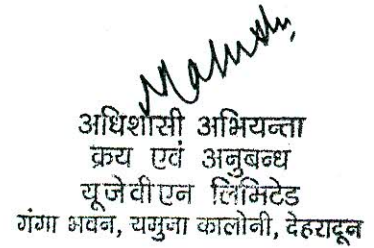 अधिशासी अभियन्ता
क्रय एवं अनुबन्ध
यूजेवीएन लिमिटेड
गंगा भवन, यमुना कालोनी, देहरादून